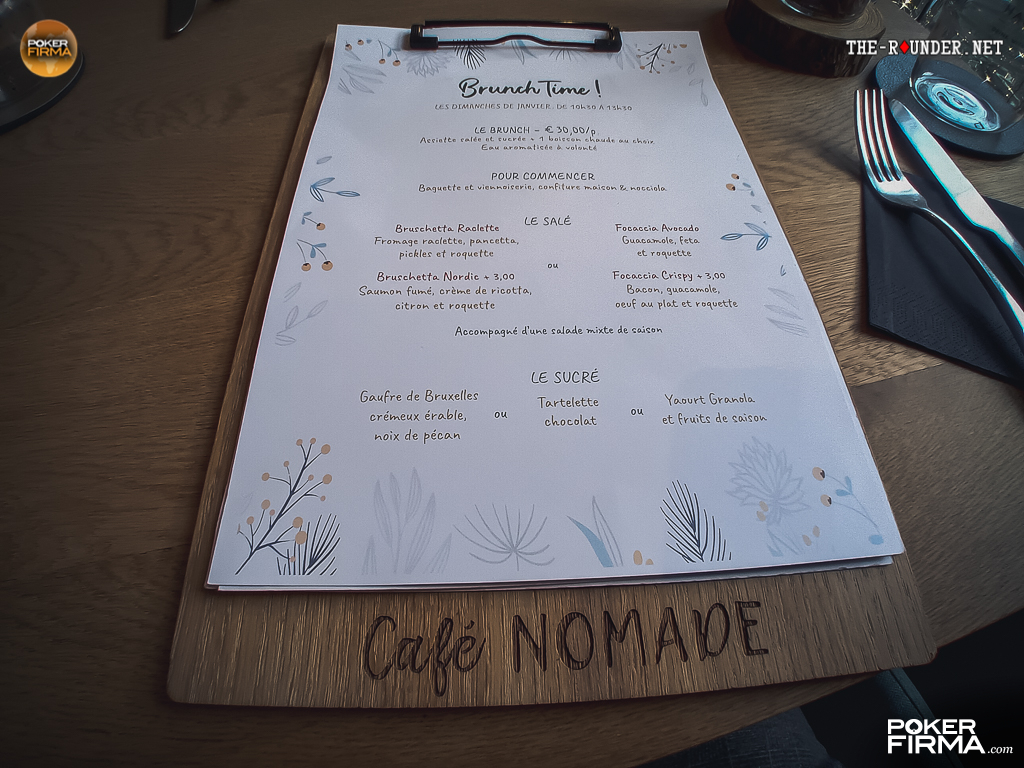 POKER
FIRMA
THE-ROUNDER.NET
Brunch Time !
LES DIMANCHES DE JANVIER, DE 10h30 À 13h30
LE BRUNCH – € 30,00/p.
Assiette salée et sucrée + 1 boisson chaude au choix
Eau aromatisée à volonté
POUR COMMENCER
Baguette et viennoiserie, confiture maison & nocciola
LE SALÉ
Bruschetta Raclette
Fromage raclette, pancetta,
pickles et roquette
Focaccia Avocado
Guacamole, feta
et roquette
ou
Bruschetta Nordic + 3,00
Saumon fumé, crème de ricotta,
citron et roquette
Focaccia Crispy + 3,00
Bacon, guacamole,
oeuf au plat et roquette
Accompagné d'une salade mixte de saison
LE SUCRÉ
Gaufre de Bruxelles
crémeux érable,
noix de pécan
ou
Tartelette
chocolat
ou
Yaourt Granola
et fruits de saison
Café NOMADE
POKER
FIRMA.com